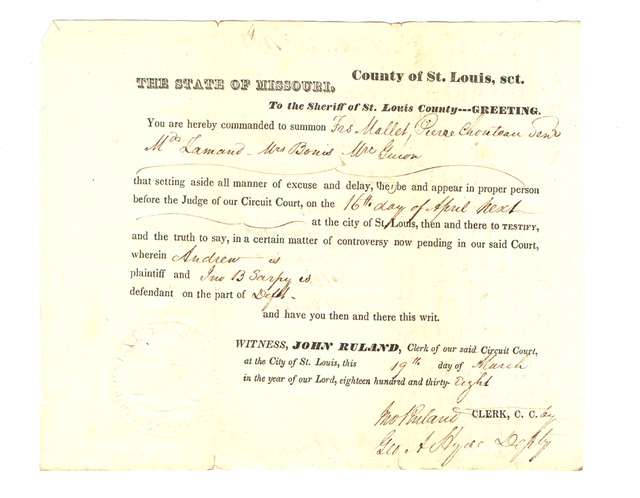 4
THE STATE OF MISSOURI, County of St. Louis, sct.
To the Sheriff of St. Louis County---GREETING.
You are hereby commanded to summon Frs Mallet, Pierre Chouteau Senr
Mds Lamand - Mrs Bonis - Mrs Guion
that setting aside all manner of excuse and delay, they be and appear in proper person
before the Judge of our Circuit Court, on the 16th day of April Next
at the city of St. Louis, then and there to TESTIFY,
and the truth to say, in a certain matter of controversy now pending in our said Court,
wherein Andrew is
plaintiff and Jno B Sarpy is
defendant on the part of Deft.
and have you then and there this writ.
WITNESS, JOHN RULAND, Clerk of our said Circuit Court,
at the City of St. Louis, this 19th day of March
in the year of our Lord, eighteen hundred and thirty- Eight
Jno Ruland CLERK, C. C. by
Geo A Hyde Depty